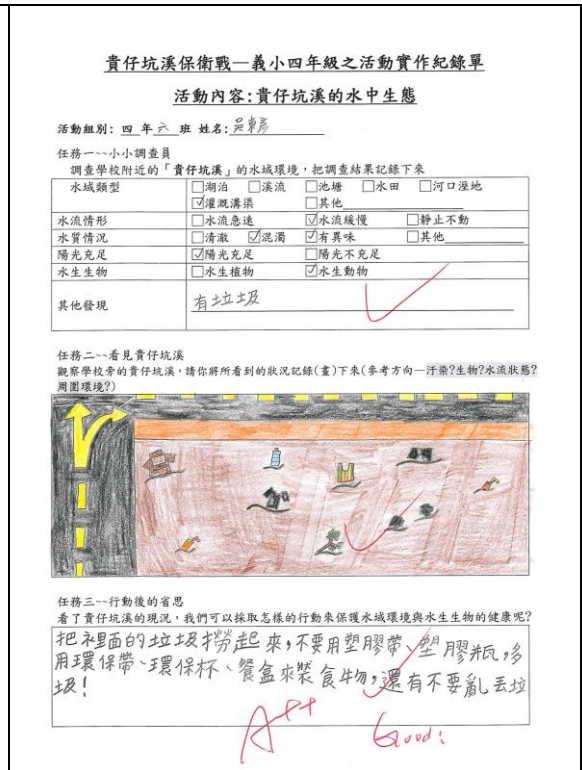 貴仔坑溪保衛戰—義小四年級之活動實作紀錄單
活動內容:貴仔坑溪的水中生態
活動組別: 四 年六 班 姓名:
任務一~~小小調查員
調查學校附近的「貴仔坑溪」的水域環境，把調查結果記錄下來
水域類型 □湖泊 □溪流 □池塘 □水田 □河口溼地
☑灌溉溝渠 □其他
水流情形 □水流急速 ☑水流緩慢 □靜止不動
水質情況 □清澈 ☑混濁 ☑有異味 □其他
陽光充足 ☑陽光充足 □陽光不充足
水生生物 □水生植物 ☑水生動物
其他發現 有垃圾
任務二~~看見貴仔坑溪
觀察學校旁的貴仔坑溪，請你將所看到的狀況記錄(畫)下來(參考方向—汙染?生物?水流狀態?
周圍環境?)
任務三~~行動後的省思
看了貴仔坑溪的現況，我們可以採取怎樣的行動來保護水域環境與水生生物的健康呢?
把裡面的垃圾撈起來，不要用塑膠帶、塑膠瓶，多
用環保帶、環保杯、餐盒來裝食物，還有不要亂丟垃
圾!
A++
Good!